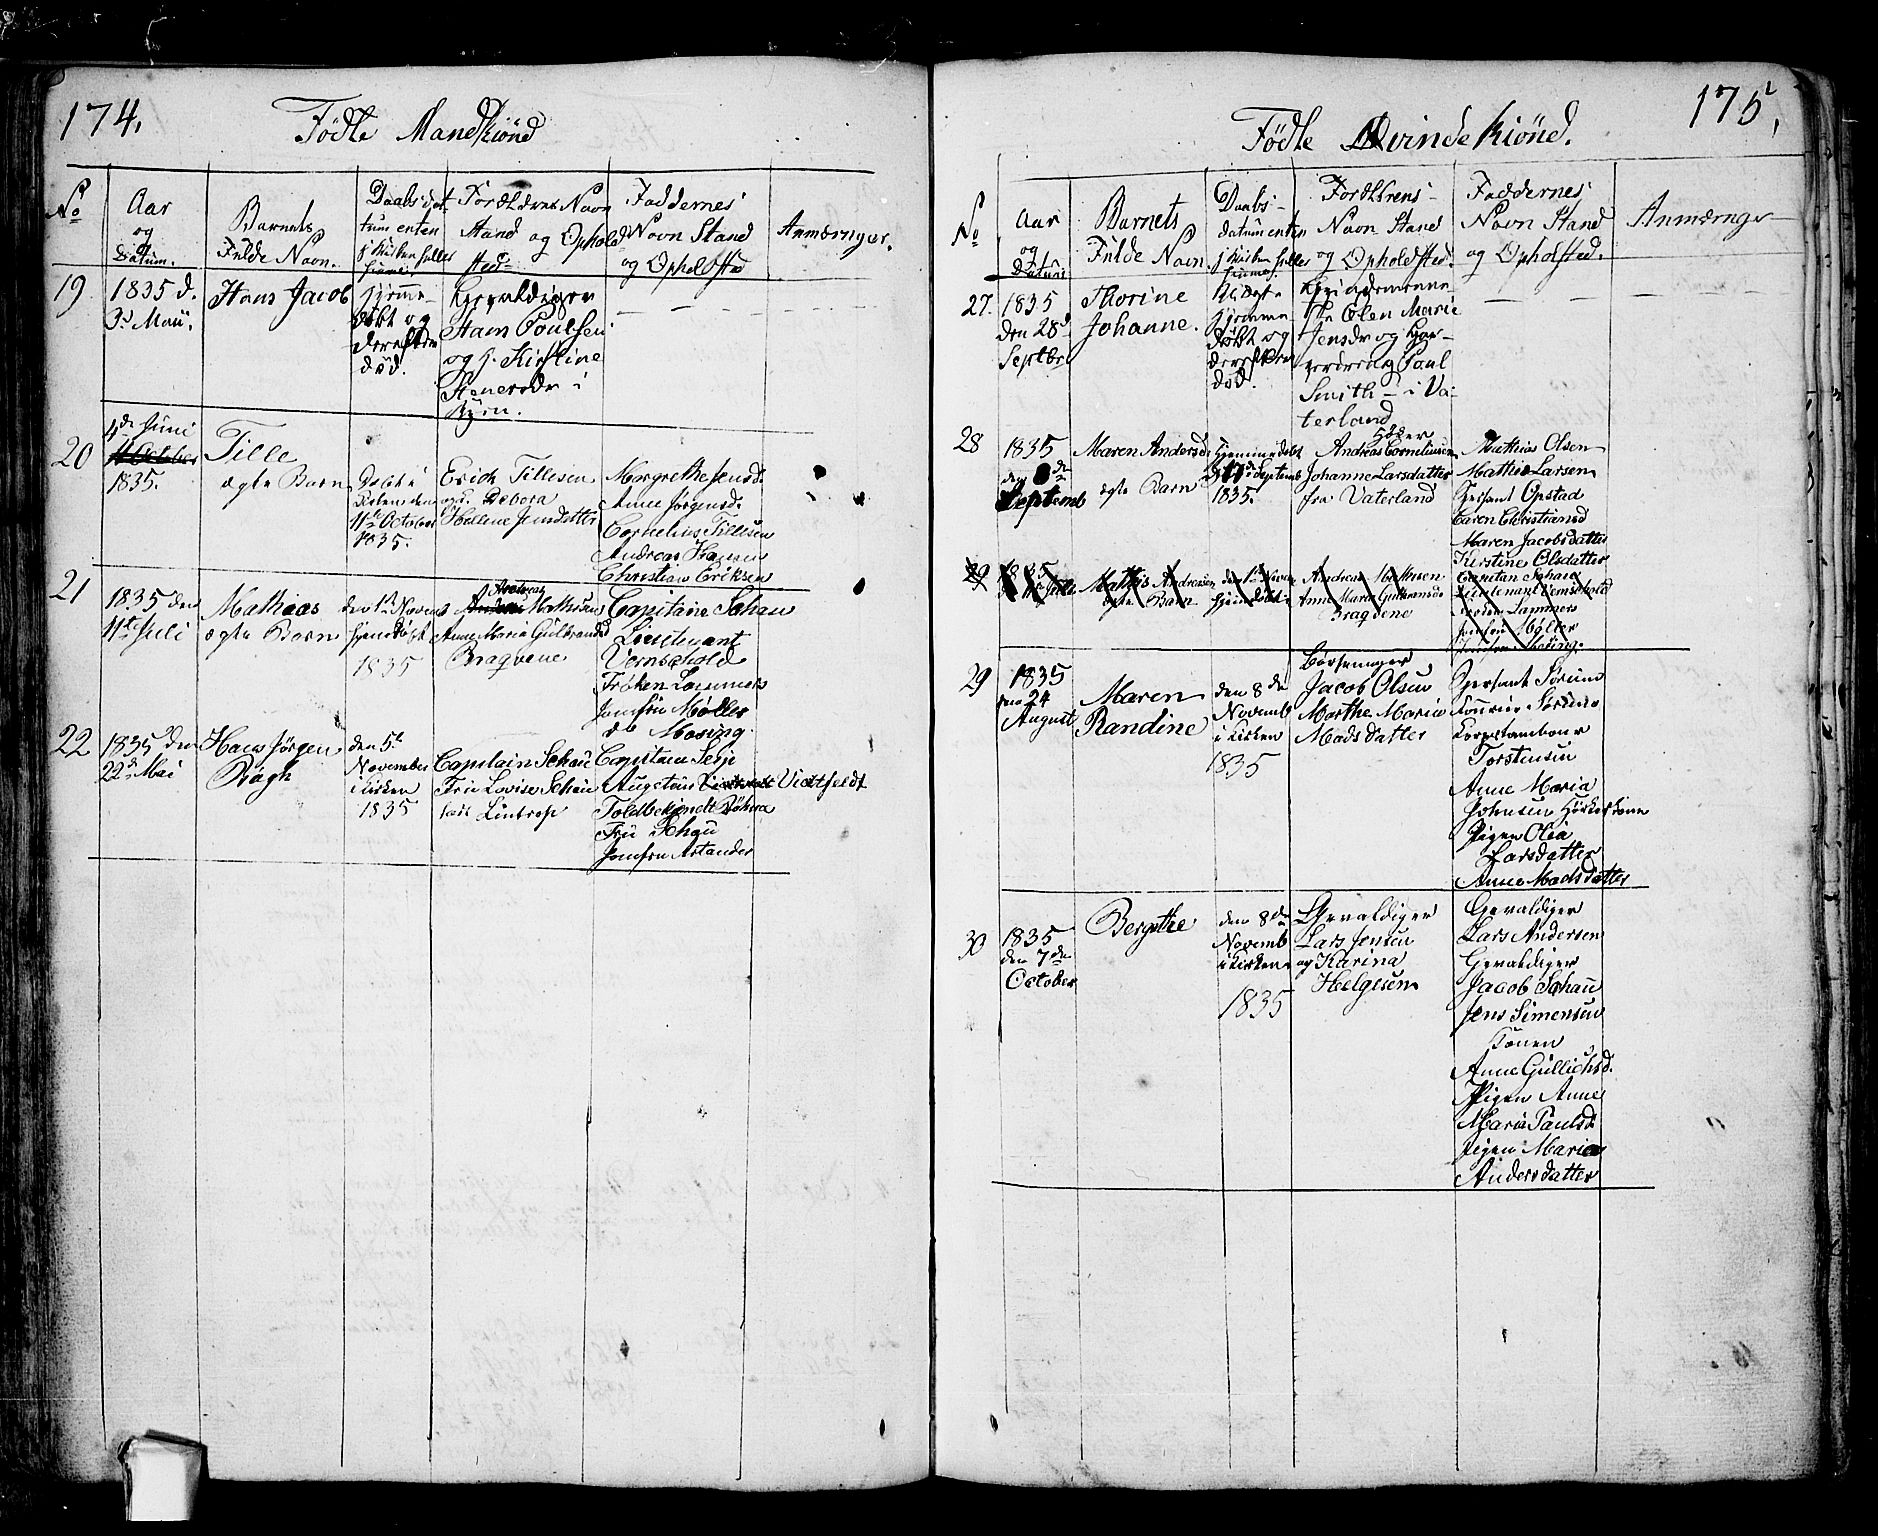 174.
Födte Mandkiönd
No
Aar
og
Datum.
Barnets
Fulde Navn.
Daabsda-
tum enten
j Kirken heller
hieme
Forældrenes Navn
Stand og Ophold
sted
Faddernes
Navn Stand
og Opholdsted
Anmærnger.
19
1835 d.
3d Maii.
Hans Jacob
hjemme-
döbt og
derefter
död.
Gevaldiger
Hans Poulsen
og h. Kirstine
Steensdr i
Byen.
20
4de Juni
11 October
1835.
Tille
ægte Barn
Döbt i
Kirken den
11te October
1835.
Erich Tillesen
og Debora
Hellene Jensdatter
Margrethe Jensd.
Anne Jörgensd.
Cornelius Tillesen
Andreas Hansen
Christian Eriksen
21
1835 den
11te Juli
Mathias
ægte Barn
den 1te Novem
hjemdöbt
1835
Andreas
Mathisen
Anne Maria Gulbransd
Bragnene
Capitaine Schau
Lieutenant
Vernschold
Fröken Lammers
Jomfru Möller
do Mosing.
22
1835 den
22de Mai
Hans Jörgen
Bögh
den 5te
November
i Kirken
1835
Capitain Schau
Fru Lovise Schau
föd Lintrop
Capitain Seje
Augetün Vietfeldt
Toldbetjendt Böhm
Fru Schau
Jomfru Astander
175.
Födte Qvindekiönd.
No
Aar
og
Datum
Barnets
Fulde Navn
Daabs-
datum enten
j Kirken heller
hiemes.
Forældrens
Navn Stand
og Opholdsted.
Faddernes
Navn Stand
og Opholsted.
Anmærnger
27.
1835
den 28d
Septbr
Thorine
Johanne.
hjemme
döbt og
derefter
död.
Olen Marie
Jensdr og
Poul
Smith - i Va-
terland
28
1835
den de
Septemb
Maren Andersd
ægte Barn
hjemmedöbt
Septemb
1835.
Andreas Corneliusen
Johanne Larsdatter
fra Vaterland
Mathias Olsen
Mathis Larsen
Serjant Opstad
Caren Christiansd
Maren Jacobsdatter
Kirstine Olsdatter
29
1835
11te Juli
Mathis Andreasen
ægte Barn
den 1te Novem
hjemdöbt
Andreas Mathisen
Anne Maria Gulbransdr
Bragnene
Capitan Schau
Lieutenant Vernschold
Fröken Lammers
Jomfru Möller
Jomfru Mosing.
29
1835
den 24
August
Maren
Randine
den 8de
Novemb
i Kirken
1835
Jacob Olsen
Marthe Maria
Madsdatter
Serjant Sörum
Torstensen
Anne Maria
Johnsen Hörkerkone
Pigen Olia
Larsdatter
Anne Madsdatter
30
1835
den 7de
October
Bergitte
den 8de
Novemb
i Kirken
1835
Gevaldiger
Lars Jensen
og Karina
Helgesen
Gevaldiger
Lars Andersen
Gevaldiger
Jacob Schau
Jens Simensen
Konen
Anne Gullichsd.
Pigen Anne
Maria Paulsd
Pigen Maria
Andersdatter